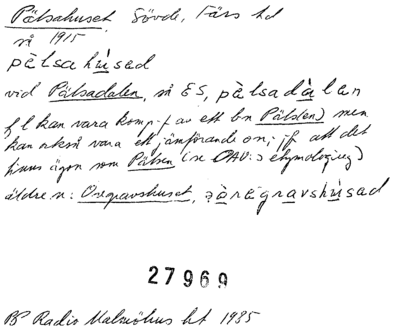 Pälsahuset, Sövde, Färs hd
så 1915
pälsahúsad
vid Pälsadalen, så ES, pälsadàlen
f l kan vara komp.f. av ett bn Päls(en) men
kan också vara ett jämförande on; jf att det
finns ägor som Pälsen (se OAU:s etymologier)
äldre n: Oregravshuset, àregravshúsad
27969
BP Radio Malmöhus ht 1985